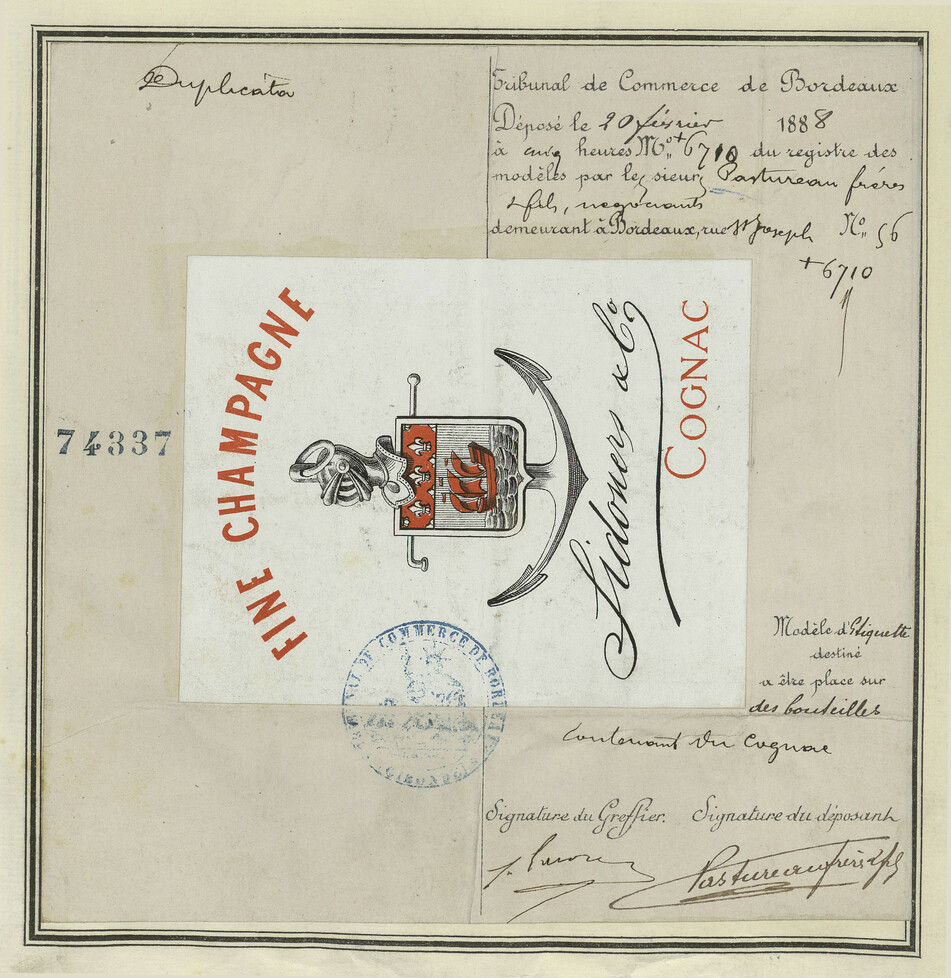 Duplicata
Tribunal de Commerce de Bordeaux
Déposé le 20 février 1888
à cinq heures Nº +6710 du registre des
modèles par les sieurs Pastureau frères
& fils, négociants
demeurant à Bordeaux, rue St Joseph Nº 56
+6710
74337
FINE CHAMPAGNE
Sidoners & Co
COGNAC
TRIBUNAL DE COMMERCE DE BORDEAUX
(GIRONDE)
Modèle d'Etiquette
destiné
a être place sur
des bouteilles
contenant du Cognac
Signature du Greffier. Signature du déposant
Pastureau frères & fils